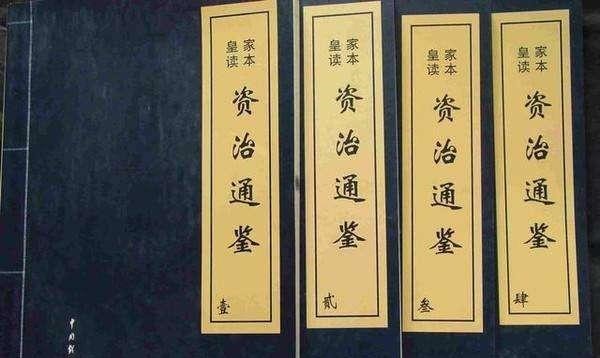 皇家
读本
资治通鉴
壹
皇家
读本
资治通鉴
贰
皇家
读本
资治通鉴
叁
皇家
读本
资治通鉴
肆
中国